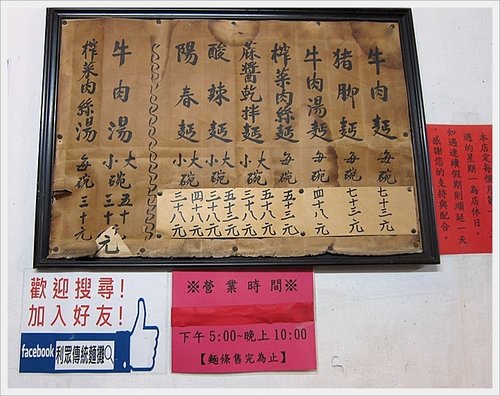 牛肉麵 每碗 七十三元
猪脚麵 每碗 七十三元
牛肉湯麵 每碗 四十八元
榨菜肉絲麵 每碗 五十三元
蔴醬乾拌麵 大小碗
酸辣麵 大小碗
陽春麵 大小碗 四十八元 三十八元
牛肉湯 大碗 五十元
小碗 三十元
榨菜肉絲湯 每碗 三十元
本店定每個月第
週的星期一為店休日。
如遇連續假期則順延一天
感謝您的支持與配合。
歡迎搜尋!
加入好友!
facebook 利眾傳統麵攤
※營業時間※
下午 5:00~晚上 10:00
【麵條售完為止】